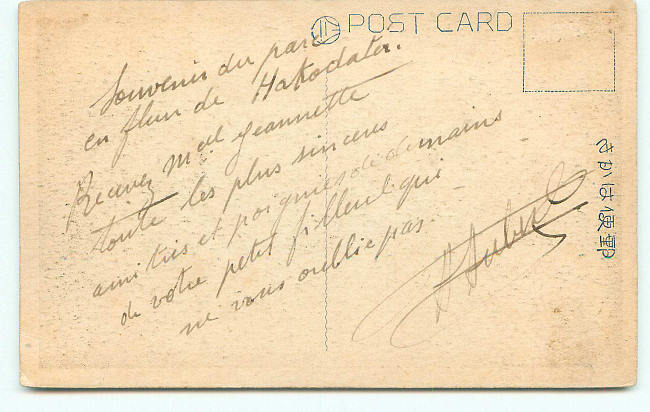 POST CARD
きかは便郵
Souvenir du parc
en fleur de Hakodate.
Recevez Mad Jeannette
toute les plus sincères
amitiés et poignées de mains
de votre petit filleul qui
ne vous oublie pas.